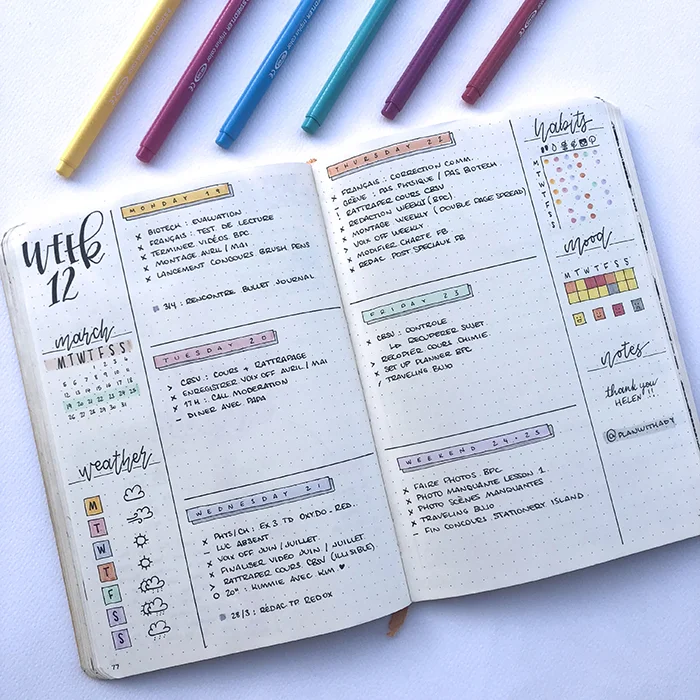 WEEK
12
march
M T W T F S S
1 2 3 4
5 6 7 8 9 10 11
12 13 14 15 16 17 18
19 20 21 22 23 24 25
26 27 28 29 30 31
weather
M
T
W
T
F
S
S
77
MONDAY 19
x BIOTECH : EVALUATION
x FRANÇAIS : TEST DE LECTURE
x TERMINER VIDÉOS BPC
x MONTAGE AVRIL / MAI
x LANCEMENT CONCOURS BRUSH PENS
3/4 : RENCONTRE BULLET JOURNAL
TUESDAY 20
> CBSV : COURS + RATTRAPAGE
x ENREGISTRER VOIX OFF AVRIL / MAI
x 17H : CALL MODERATION
– DINER AVEC PAPA
WEDNESDAY 21
x PHYS/CH : EX 3 TD OXYDO_RED.
– LUC ABSENT
x VOIX OFF JUIN / JUILLET
x FINALISER VIDÉO JUIN / JUILLET
> RATTRAPER COURS CBSV (ILLISIBLE)
O 20H : KIMMIE AVEC KIM ♥
28/3 : RÉDAC TP REDOX
THURSDAY 22
x FRANÇAIS : CORRECTION COMM.
– GRÈVE : PAS PHYSIQUE / PAS BIOTECH
RATTRAPER COURS CBSV
x REDACTION WEEKLY (BPC)
x MONTAGE WEEKLY (DOUBLE PAGE SPREAD)
x VOIX OFF WEEKLY
x MODIFIER CHARTE FB
x REDAC POST SPECIAUX FB
FRIDAY 23
x CBSV : CONTROLE
↳ RECUPERER SUJET
> RECOPIER COURS CHIMIE
> SET UP PLANNER BPC
TRAVELING BUJO
WEEKEND 24 - 25
x FAIRE PHOTOS BPC
x PHOTO MANQUANTE LESSON 1
x PHOTO SCÈNES MANQUANTES
x TRAVELING BUJO
– FIN CONCOURS STATIONERY ISLAND
habits
M
T
W
T
F
S
S
mood
M T W T F S S
notes
thank you
HELEN !!
@PLANWITHADY